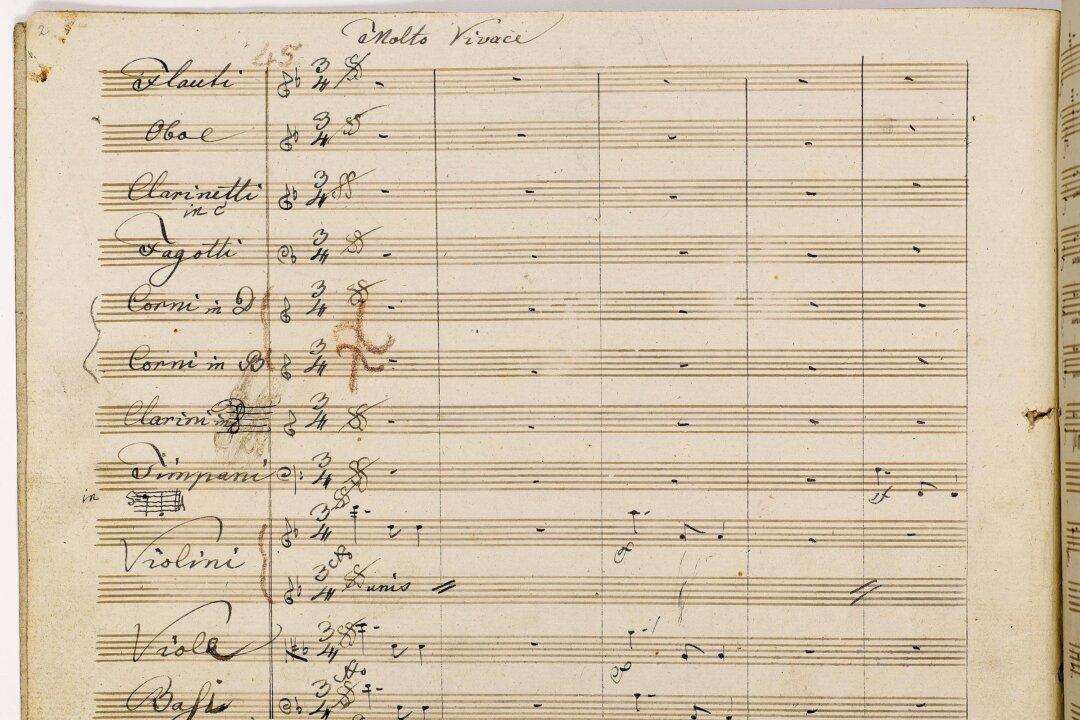 2
Molto Vivace
45
Flauti 3 4
Oboe 3 4
Clarinetti 3 4
in C
Fagotti 3 4
Corni in D 3 4
Corni in B 3 4
Clarini in 3 4
Timpani 3 4
in
Violini 3 4
3 4 unis
Viola 3 4
Bassi 3 4